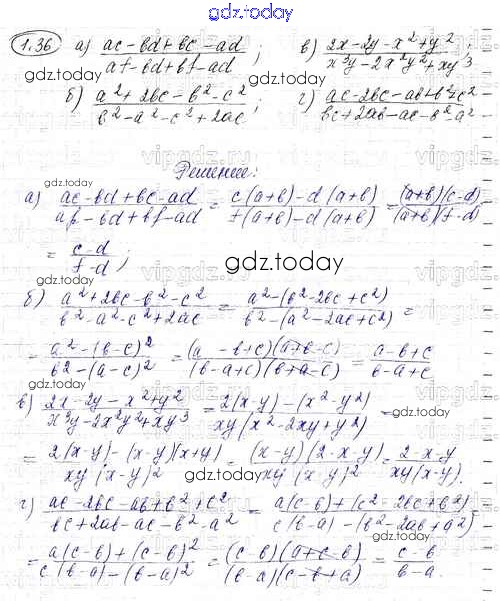 1.36 а) (ac-bd+bc-ad)/(af-bd+bf-ad); в) (2x-2y-x²+y²)/(x³y-2x²y²+xy³);
gdz.today gdz.today
б) (a²+2bc-b²-c²)/(b²-a²-c²+2ac); г) (ac-2bc-ab+b²+c²)/(bc+2ab-ac-b²-a²)
gdz.today gdz.today
Решение:
а) (ac-bd+bc-ad)/(af-bd+bf-ad) = (c(a+b)-d(a+b))/(f(a+b)-d(a+b)) = ((a+b)(c-d))/((a+b)(f-d))
= (c-d)/(f-d);
gdz.today
б) (a²+2bc-b²-c²)/(b²-a²-c²+2ac) = (a²-(b²-2bc+c²))/(b²-(a²-2ac+c²)) =
= (a²-(b-c)²)/(b²-(a-c)²) = ((a-b+c)(a+b-c))/((b-a+c)(b+a-c)) = (a-b+c)/(b-a+c)
gdz.today
в) (2x-2y-x²+y²)/(x³y-2x²y²+xy³) = (2(x-y)-(x²-y²))/(xy(x²-2xy+y²)) =
= (2(x-y)-(x-y)(x+y))/(xy(x-y)²) = ((x-y)(2-x-y))/(xy(x-y)²) = (2-x-y)/(xy(x-y)).
gdz.today gdz.today
г) (ac-2bc-ab+b²+c²)/(bc+2ab-ac-b²-a²) = (a(c-b)+(c²-2bc+b²))/(c(b-a)-(b²-2ab+a²))
gdz.today
= (a(c-b)+(c-b)²)/(c(b-a)-(b-a)²) = ((c-b)(a+c-b))/((b-a)(c-b+a)) = (c-b)/(b-a).
gdz.today